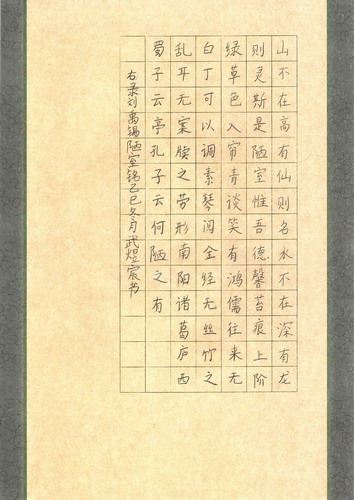 山不在高有仙则名水不在深有龙
则灵斯是陋室惟吾德馨苔痕上阶
绿草色入帘青谈笑有鸿儒往来无
白丁可以调素琴阅金经无丝竹之
乱耳无案牍之劳形南阳诸葛庐西
蜀子云亭孔子云何陋之有
右录刘禹锡陋室铭乙巳冬月武煜宸书